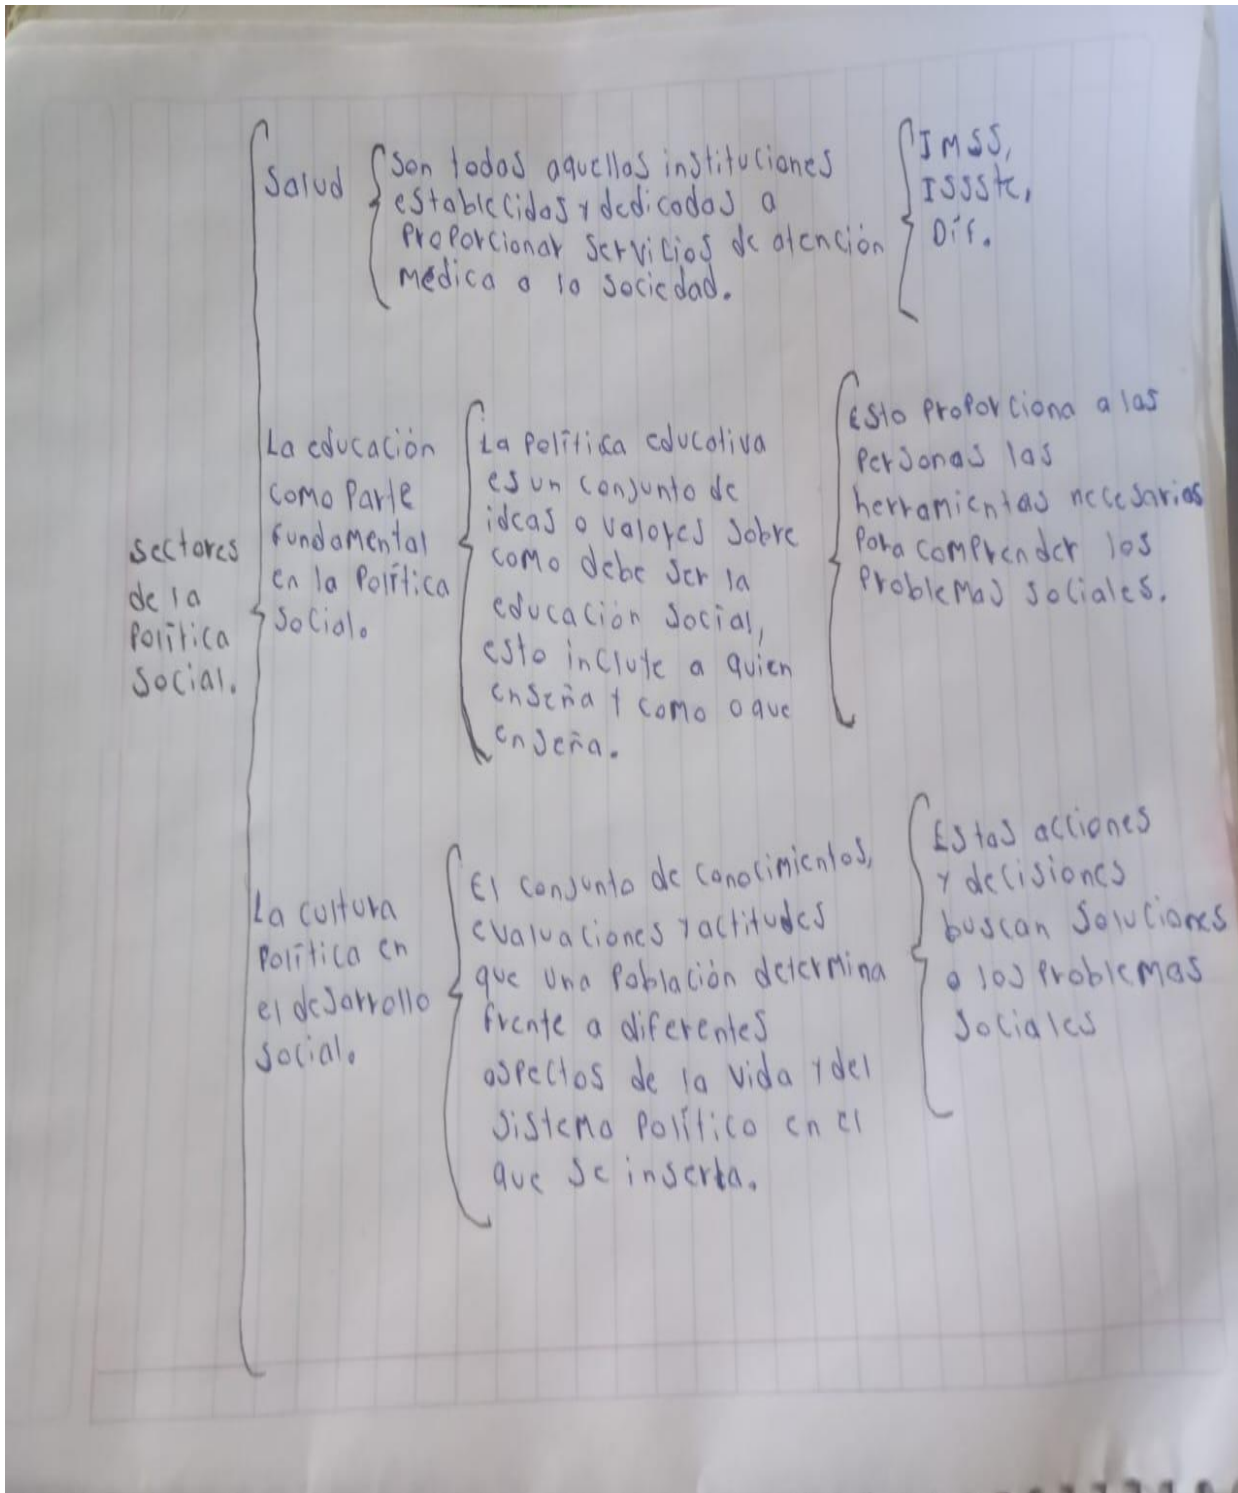 Sectores
de la
Política
Social.
Salud
Son todas aquellas instituciones
establecidas y dedicadas a
Proporcionar servicios de atención
médica a la sociedad.
IMSS,
ISSSte,
Dif.
La educación
como Parte
fundamental
en la Política
Social.
La Política educativa
es un conjunto de
ideas o valores sobre
como debe ser la
educación social,
esto incluye a quien
enseña y como o que
enseña.
Esto Proporciona a las
Personas las
herramientas necesarias
Para comprender los
Problemas sociales.
La cultura
Política en
el desarrollo
social.
El conjunto de conocimientos,
evaluaciones y actitudes
que una Población determina
frente a diferentes
aspectos de la vida y del
sistema Político en el
que se inserta.
Estas acciones
y decisiones
buscan Soluciones
a los Problemas
Sociales